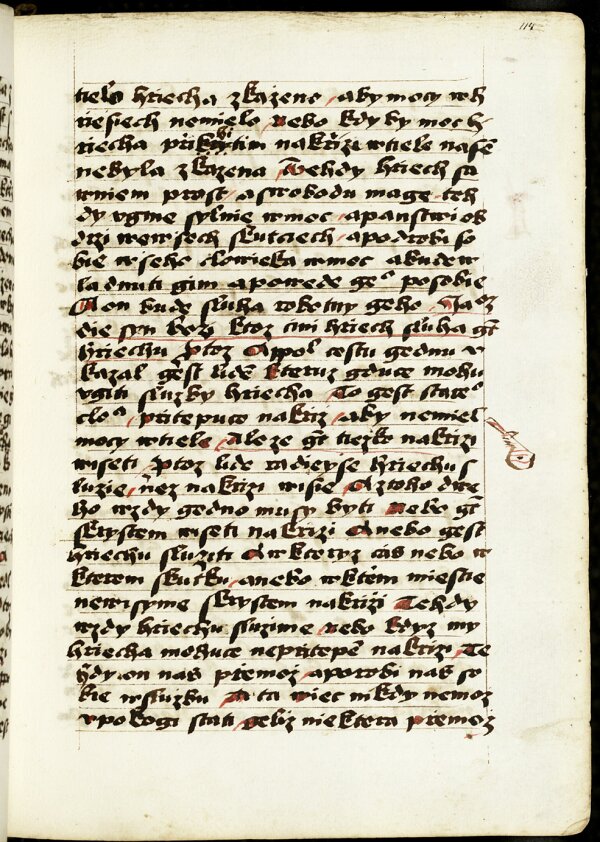 114
tielo hriecha zkazeno aby mocy w h
riesiech nemielo Nebo kdyby moc h
riecha przikrytim na krziżi w tiele nasē
nebyla zkażena Tehdy hriech sa
w niem prost a swobodu mage teh
dy vgme sylnie w moc a panstwi ob
drzi we wsech skutciech a podrobi so
bie wseho clowieka w moc a bude w
ladnuti gim a powede ge° po sobie
A on bude sluha robotny geho Jakoz
die syn bozi ktoz cini hriech sluha gt
hriechu Protoz Appol cestu gednu v
kazal gest lidem kteruz gduce mohu
vgiti sluzby hriecha To gest stare°
clo° prtitepuce na krziz aby nemiel
mocy w tiele Ale ze gt tiezko na krzizi
wiseti protoz lide radieyse hriechu s
luzie nez na krzizi wisie A z toho dwe
ho wzdy gedno musy byti Nebo gt
s krystem wiseti na krzizi A nebo gest
hriechu sluziti A w kteryz cas nebo w
kterem skutku a nebo w kterem miestie
newisyme s krystem na krzizi Tehdy
wzdy hriechu sluzime nebo kdyz my
hriecha mohuce neprtitepem na krzizi Te
hdy on nas przemoz a porobi nas so
bie w sluzbu A ta wiec nikdy nemoz
v pokogi stati gelizh niektera przemoz